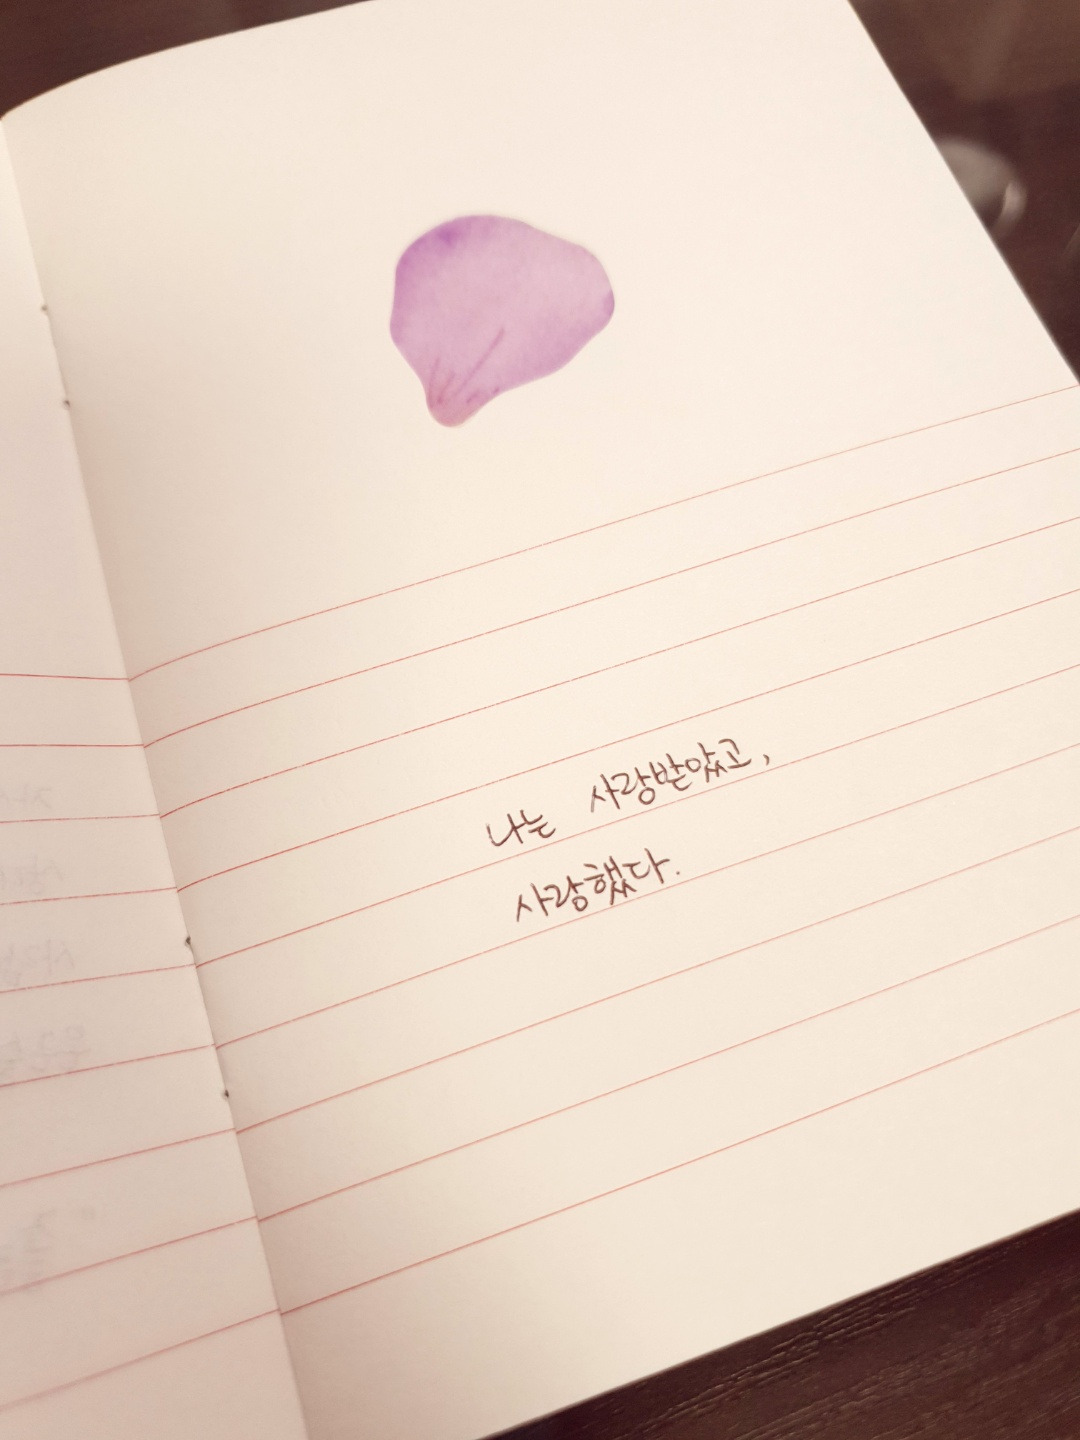 나는 사랑받았고,
사랑했다.